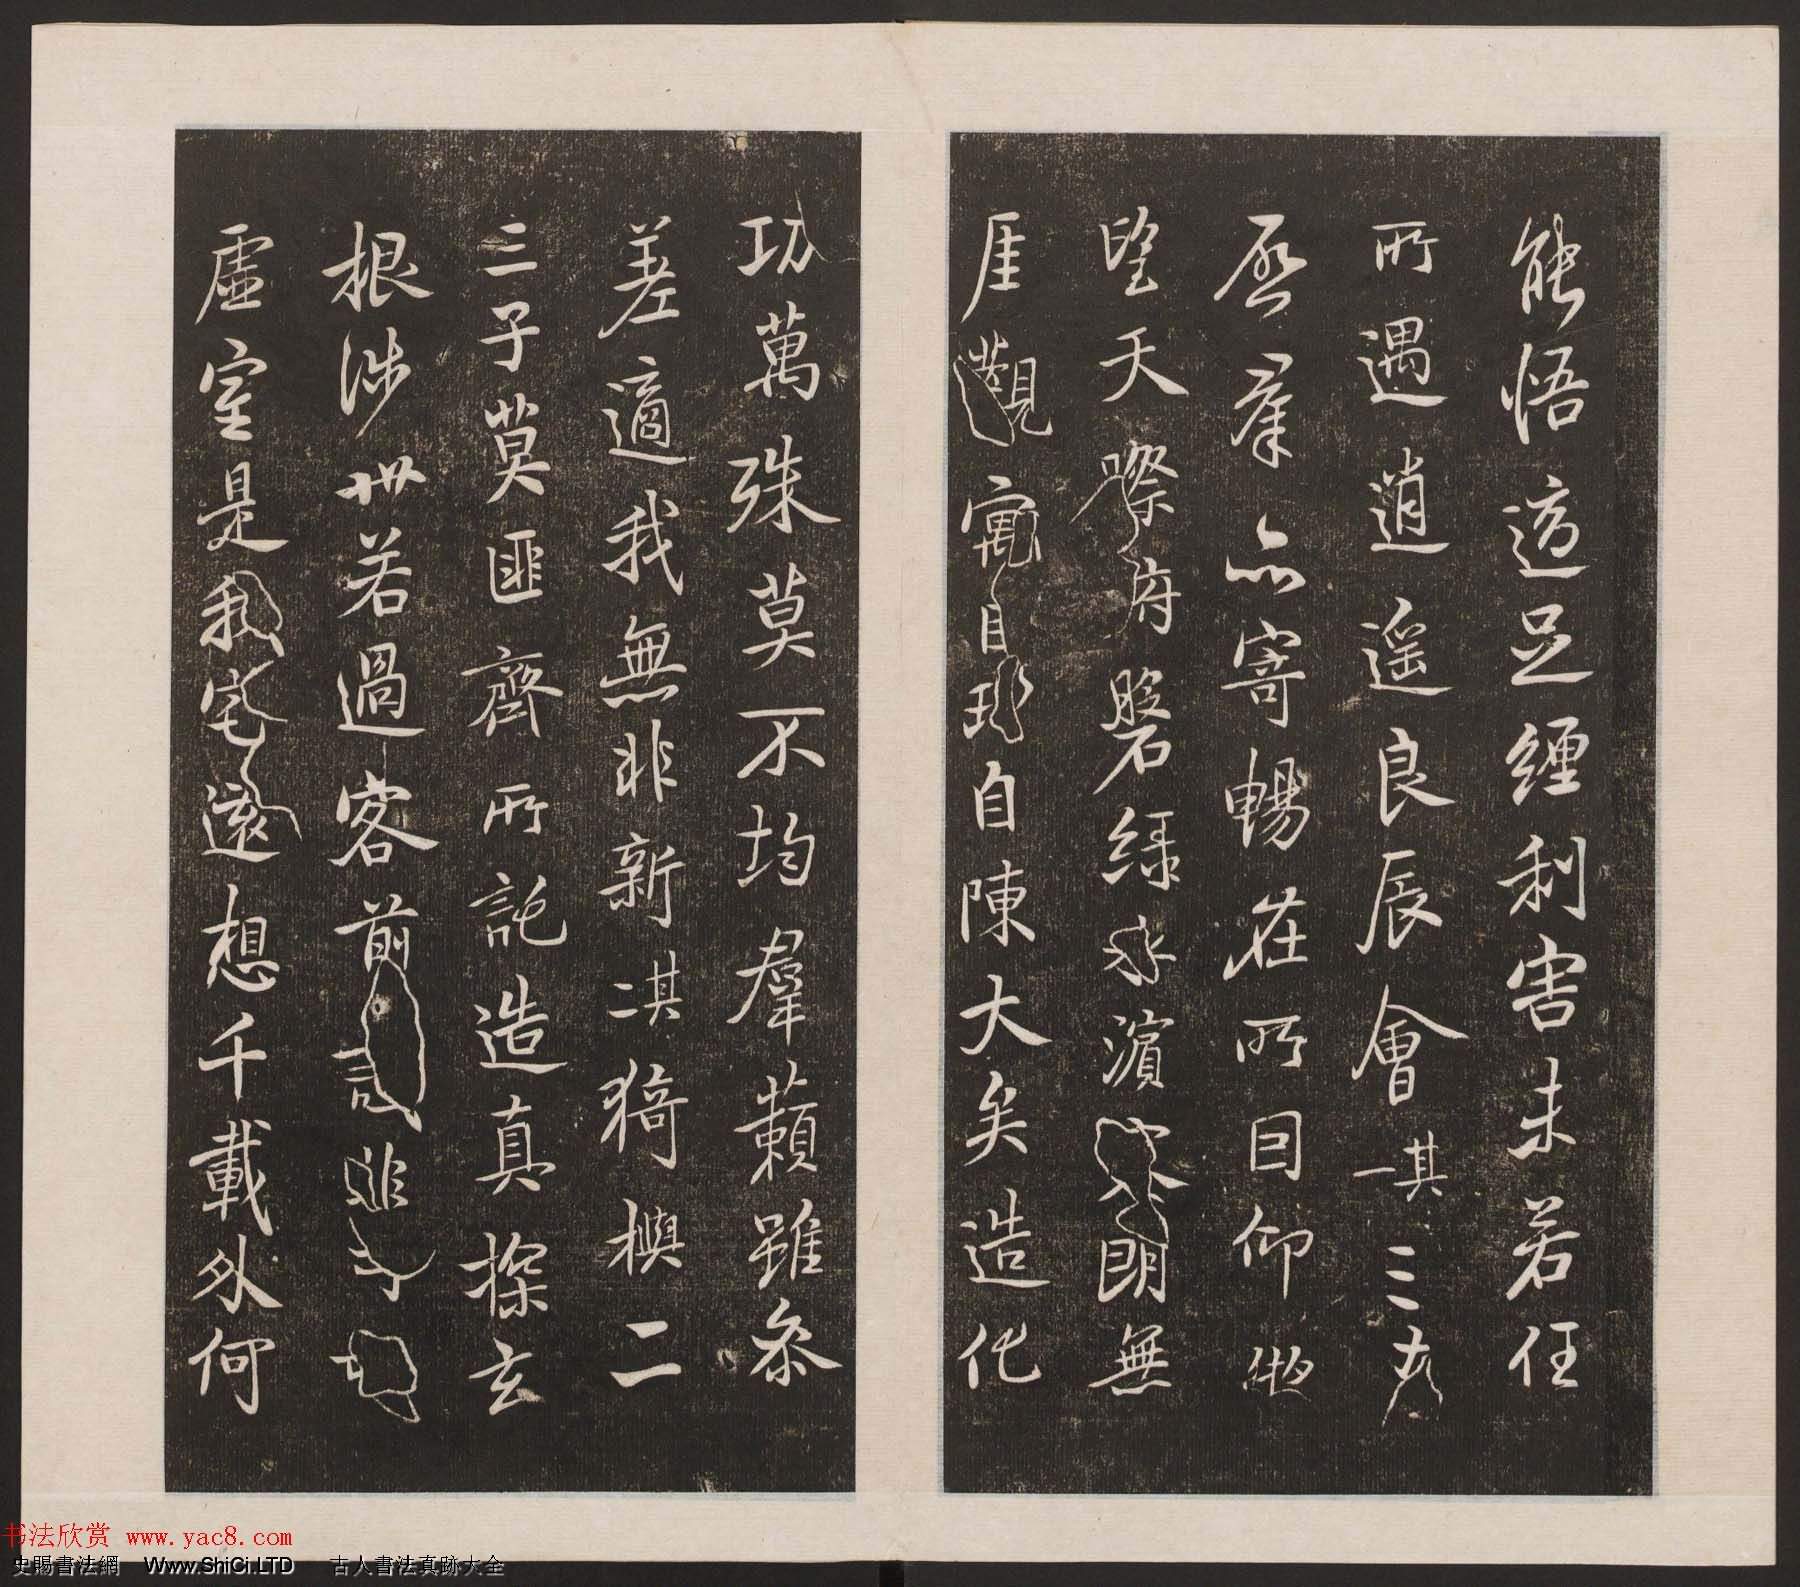 能悟適足纏利害未若任
所遇逍遥良辰會其一三春
啓羣品寄暢在所因仰
望天際俯磐緑水濱寥朗無
厓觀寓目理自陳大矣造化
功萬殊莫不均羣籟雖參
差適我無非新其二猗與二
三子莫匪齊所託造真探玄
根涉世若過客前識非所期
虚室是我宅遠想千載外何
书法欣赏 www.yac8.com
史賜書法網 Www.ShiCi.LTD 古人書法真跡大全